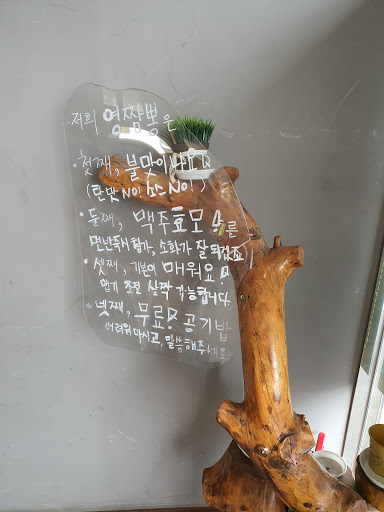 저희 영짬뽕은
• 첫째, 불맛이 나요!
(탄맛 NO! 소스 NO!)
• 둘째, 맥주효모를
면반죽시 첨가, 소화가 잘 되겠죠
• 셋째, 기본이 매워요!
맵기 조절 살짝 가능합니다
• 넷째, 무료! 공기밥
어려워 마시고, 말씀해주세요